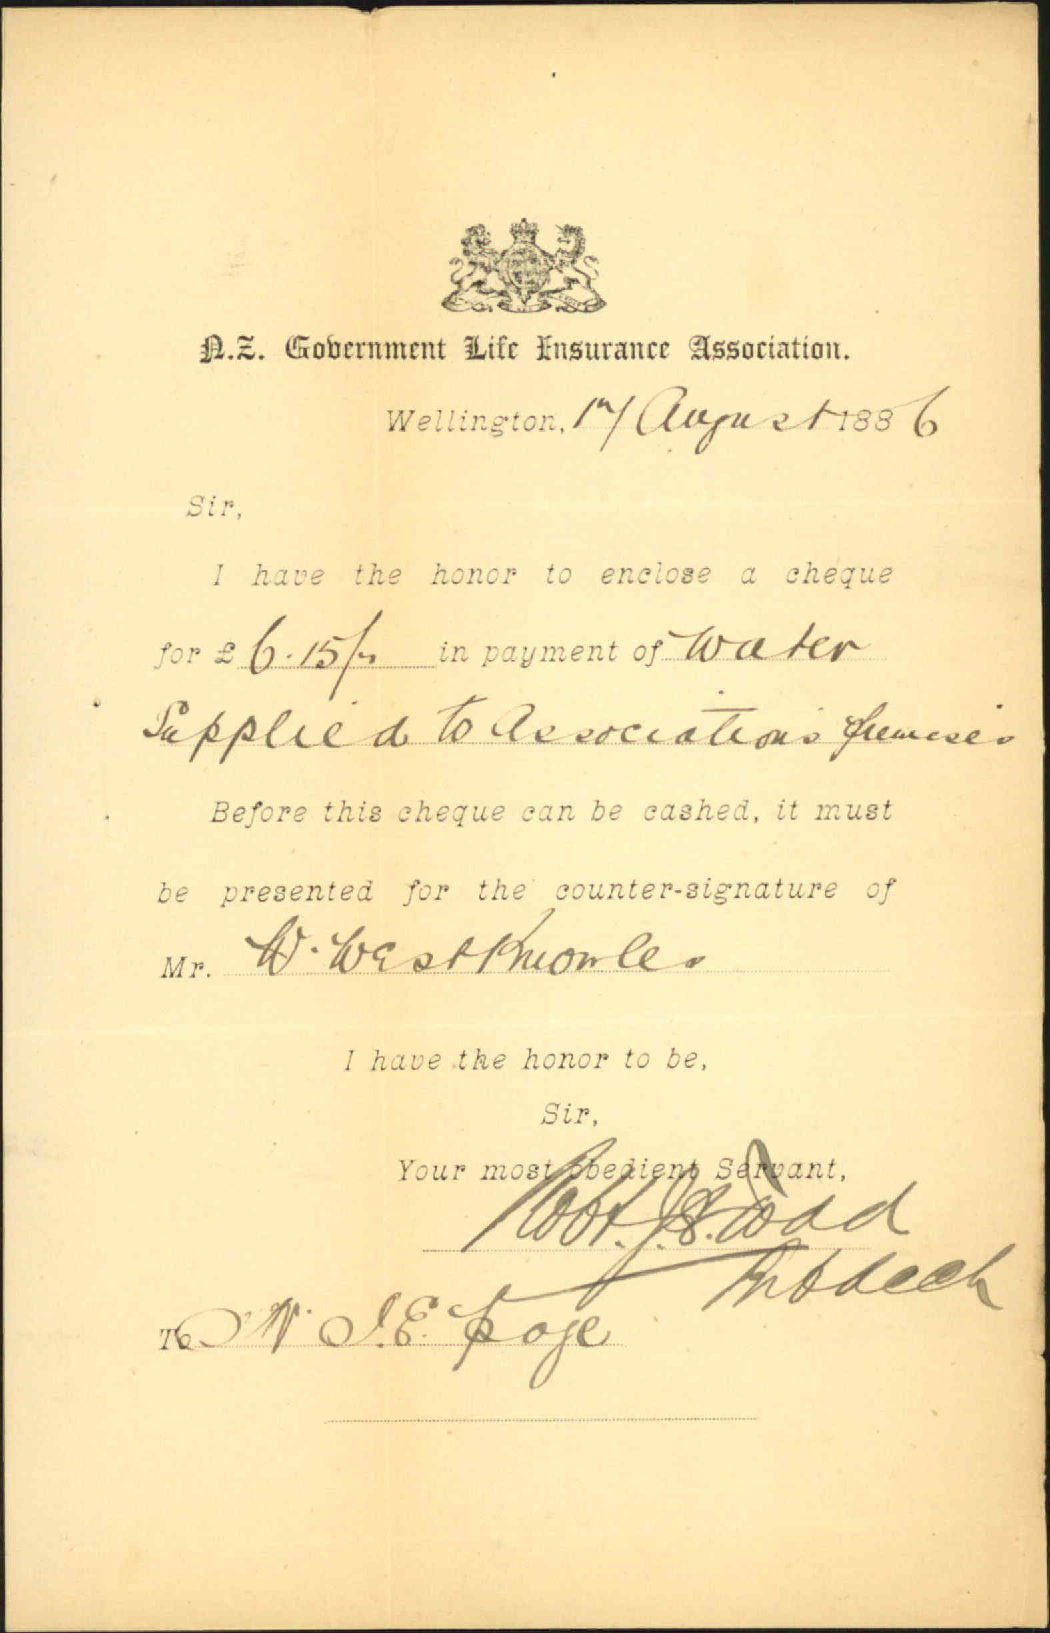 N.Z. Government Life Insurance Association.
Wellington, 17 August 1886
Sir,
I have the honor to enclose a cheque
for £ 6.15/- in payment of Water
Supplied to Association's premises
Before this cheque can be cashed, it must
be presented for the counter-signature of
Mr. W. WestKnowles
I have the honor to be,
Sir,
Your most obedient Servant,
Robt. Todd
To J. E. Page